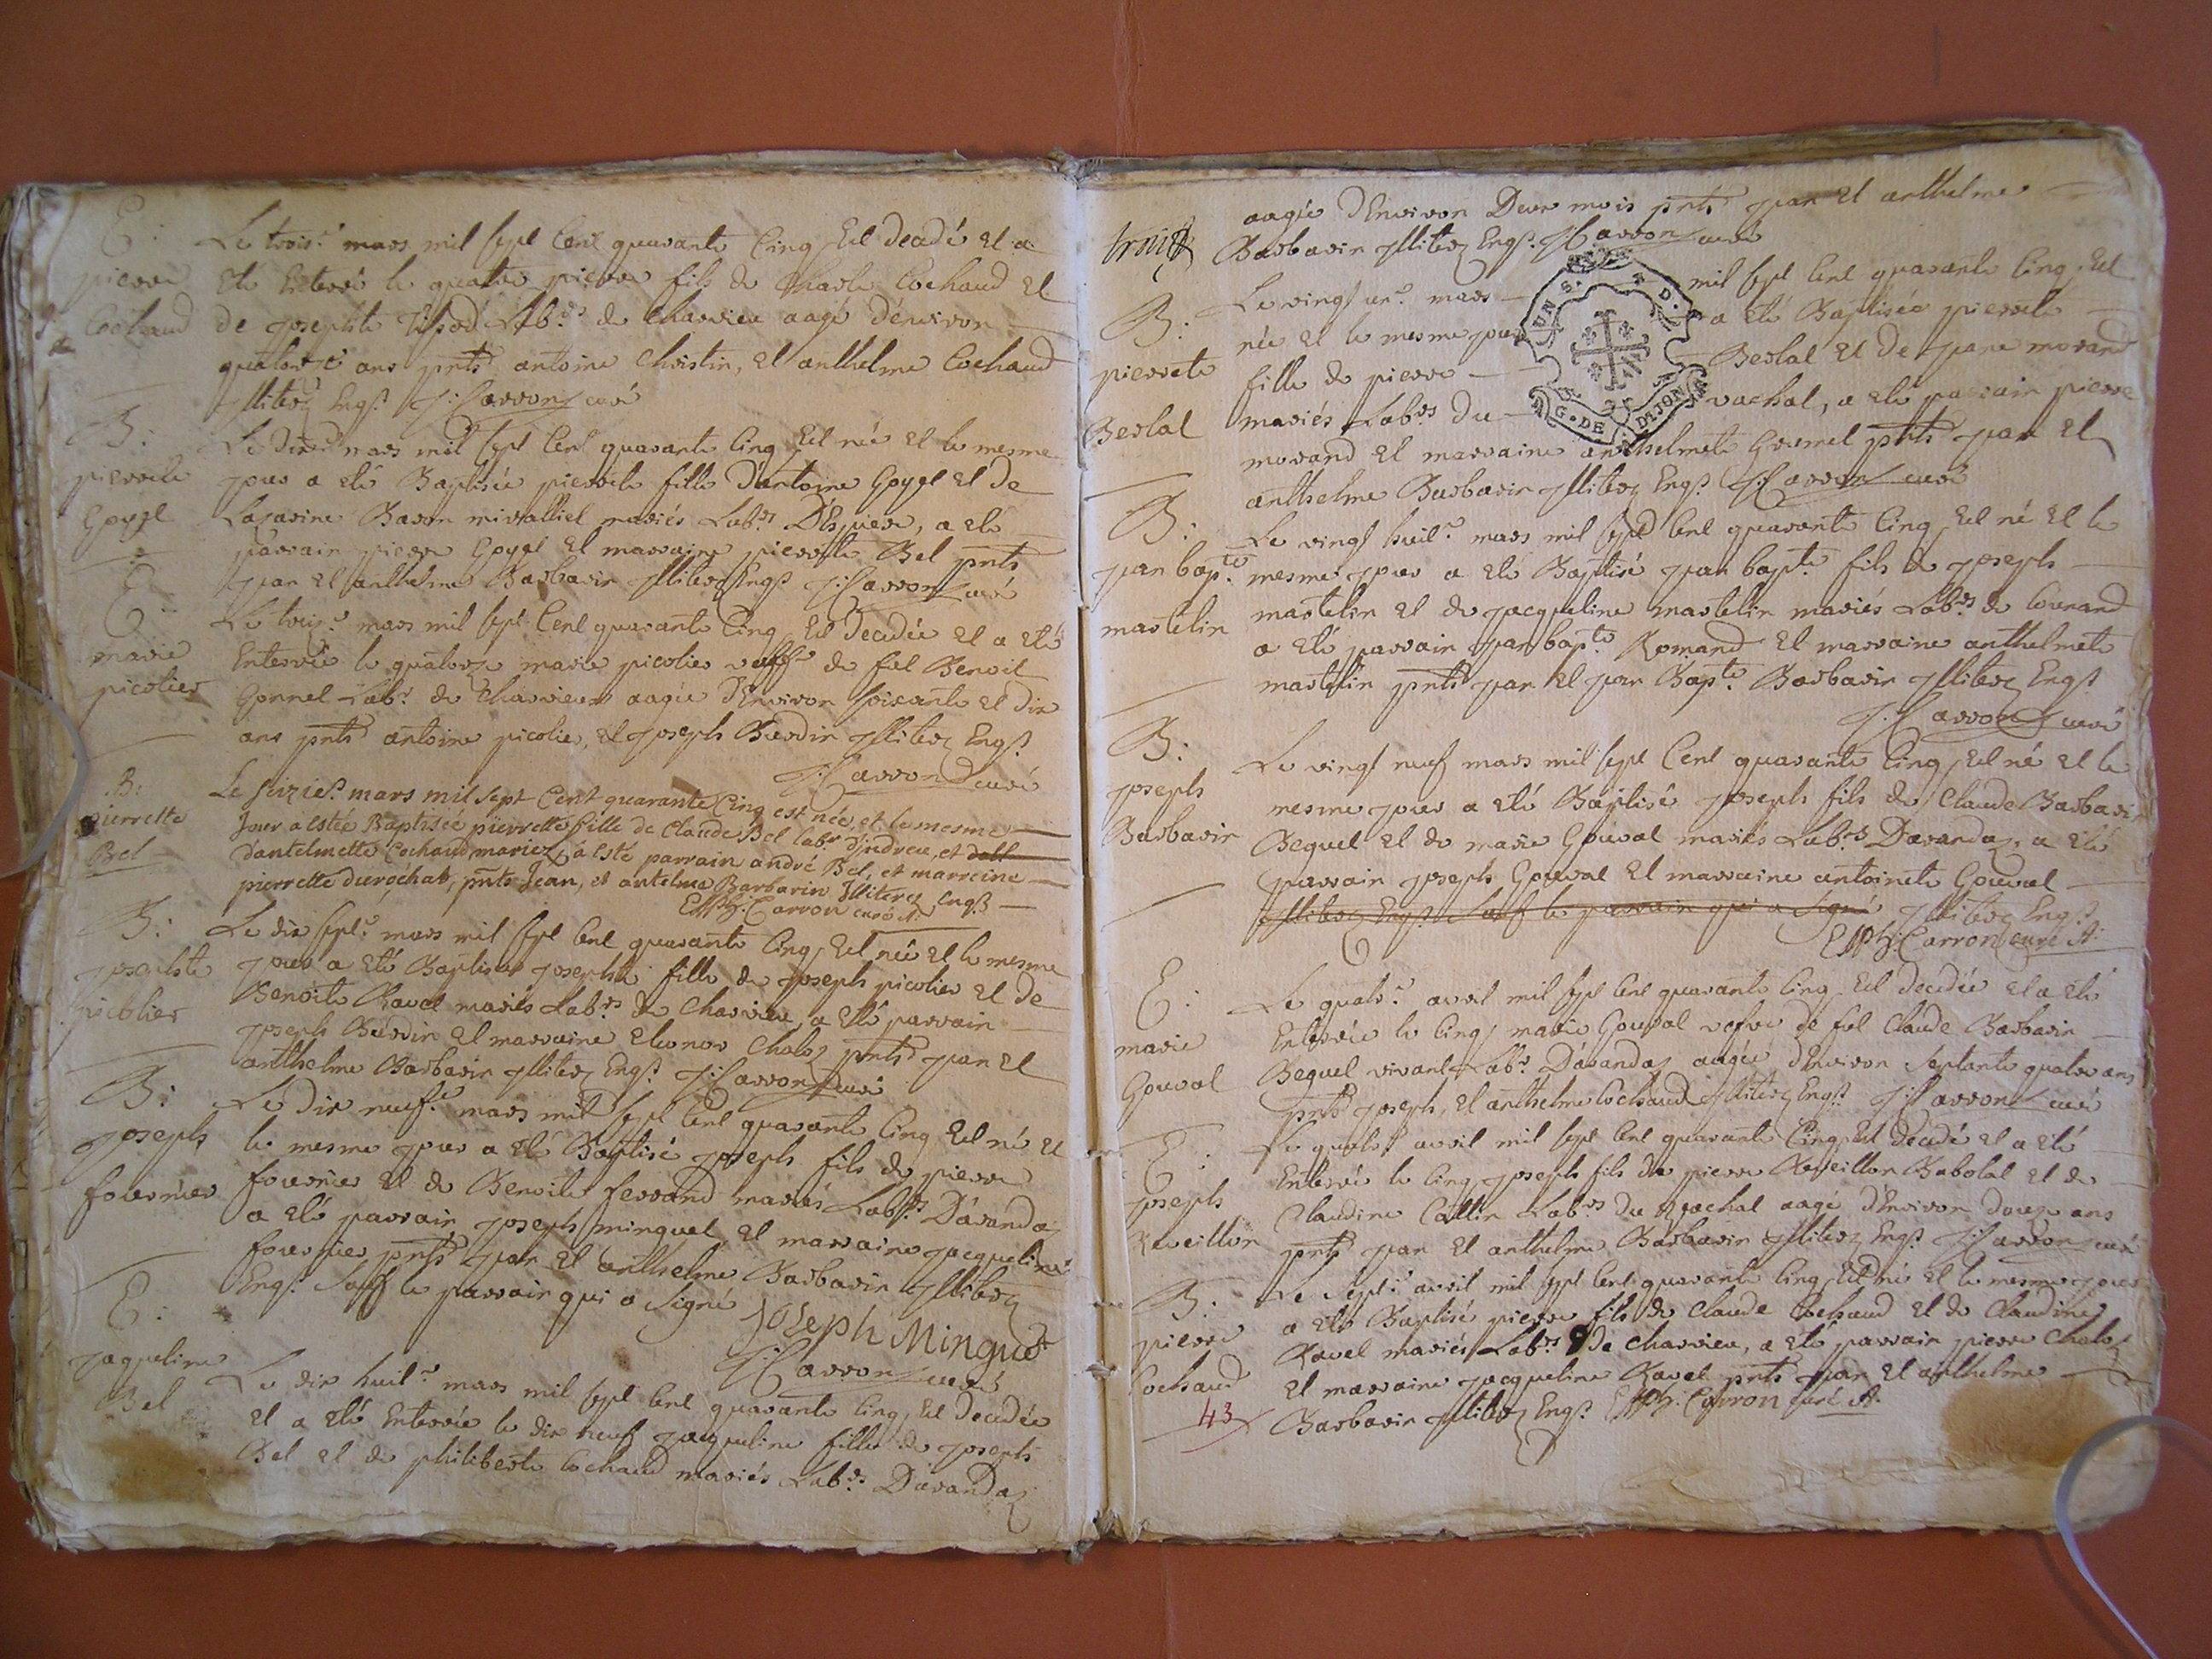 E:
pierre
Cochaud
Le trois.e mars mil sept Cent quarante Cinq Est decedé et a
Eté Enterré le quatre pierre fils de Charle Cochaud et
de josephte Labrs de Charvieu aagé d'environ
quatorze ans pnts antoine Christin, et anthelme Cochaud
Illiterez Enqs J: Carron curé
B:
pierrette
Goygel
Le dix.e mars mil sept Cent quarante Cinq Est née et le mesme
jour a eté Baptisée pierrette fille d'antoine Goygel et de
Lazarine Baron mariés Labrs a eté
parrain pierre Goygel et marraine pierrette Bel pnts
jean et anthelme Barbarin Illiterez Enqs J: Carron curé
E:
marie
picolier
Le treiz.e mars mil sept Cent quarante Cinq Est decedée et a eté
Enterrée le quatorze marie picolier veffve de feu Benoit
Gonnel Labr de Charvieux aagée d'Environ soixante et dix
ans pnts antoine picolier, et joseph Burdin Illiterez Enqs
J: Carron curé
B:
pierrette
Bel
Le seizie.e mars mil sept Cent quarante Cinq est née, et le mesme
Jour a esté Baptisée pierrette fille de Claude Bel labr d'jndreu, et
d'antelmette Cochaud mariez, a esté parrain andré Bel, et marreine
pierrette durochat, pnts Jean, et antelme Barbarin Illiterez Enqs
Carron curé A:
B:
josephte
picolier
Le dix sept.e mars mil sept Cent quarante Cinq Est née et le mesme
jour a eté Baptisée josephte fille de joseph picolier et de
Benoite Ravel mariés Labrs de Charvieu, a eté parrain
joseph Burdin et marraine Eleonor Chaloz pnts jean et
anthelme Barbarin Illiterez Enqs J: Carron curé
B:
joseph
fournier
Le dix neuf.e mars mil sept Cent quarante Cinq Est né et
le mesme jour a eté Baptisé joseph fils de pierre
fournier et de Benoite ferrand mariés Labrs D'avandaz
a eté parrain joseph minguet et marraine jacqueline
fournier pnts jean et anthelme Barbarin Illiterez
Enqs Sauf le parrain qui a signé
Joseph Minguet
J: Carron curé
E:
jaqueline
Bel
Le dix huit.e mars mil sept Cent quarante Cinq Est decedée
et a eté Enterrée le dix neuf jacqueline fille de joseph
Bel et de philiberte Cochaud mariés Labrs D'avandaz
aagée d'Environ Deux mois pnts jean et anthelme
Barbarin Illiterez Enqs. J: Carron curé
B:
pierrete
Berlat
Le vingt un.e mars mil sept Cent quarante Cinq Est
née et le mesme jour a eté Baptisée pierrete
fille de pierre Berlat et de jeane morand
mariés Labrs du rachat, a eté parrain pierre
morand et marraine anthelmete Gormel pnts jean et
anthelme Barbarin Illiterez Enqs J: Carron curé
UNS. D. G. DE DIJON
B:
jean bapte
martelin
Le vingt huit.e mars mil sept Cent quarante Cinq Est né et le
mesme jour a eté Baptisé jean bapte fils de joseph
martelin et de jacqueline martelin mariés Labrs de Courand
a eté parrain jean bapte Romand et marraine anthelmete
martelin pnts jean et jean Bapte Barbarin Illiterez Enqs
J: Carron curé
B:
joseph
Barbarin
Le vingt neuf mars mil sept Cent quarante Cinq Est né et le
mesme jour a eté Baptisé joseph fils de Claude Barbarin
Bequet et de marie Gouval mariés Labrs Davandaz, a eté
parrain joseph Gouval et marraine antoinete Gouval
Illiterez Enqs Sauf le parrain qui a signé Illiterez Enqs
Carron curé A:
E:
marie
Gouval
Le quatr.e avril mil sept Cent quarante Cinq Est decedée et a eté
Enterrée le Cinq marie Gouval vefve de feu Claude Barbarin
Bequet vivant Labr D'avandaz aagée d'Environ Septante quatre ans
pnts joseph, et anthelme Cochaud Illiterez Enqs J: Carron curé
E:
joseph
Reveillon
Le quatr.e avril mil sept Cent quarante Cinq Est decedé et a eté
Enterré le Cinq joseph fils de pierre Reveillon Babolat et de
Claudine Cattin Labrs du Rachat aagé d'Environ douze ans
pnts jean et anthelme Barbarin Illiterez Enqs J: Carron curé
B:
pierre
Cochaud
Le Sept.e avril mil sept Cent quarante Cinq Est né et le mesme jour
a eté Baptisé pierre fils de Claude Cochaud et de Claudine
Ravel mariés Labrs de Charvieu, a eté parrain pierre Chaloz
et marraine jacqueline Ravel pnts jean et anthelme
Barbarin Illiterez Enqs Carron curé A:
43